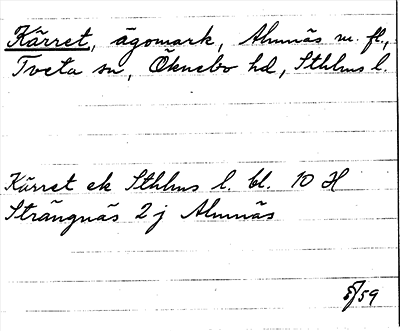 Kärret, ägomark, Almnäs m. fl.,
Tveta sn, Öknebo hd, Sthlms l.
Kärret ek Sthlms l. bl. 10 H
Strängnäs 2 j Almnäs
5/59